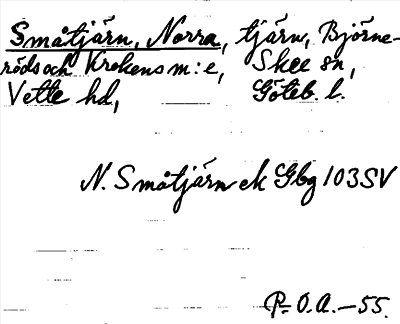 Småtjärn, Norra, tjärn, Björne-
röds och Krokens m:e, Skee sn,
Vette hd, Göteb. l.
N. Småtjärn ek Gbg 103SV
P. O.A. - 55.